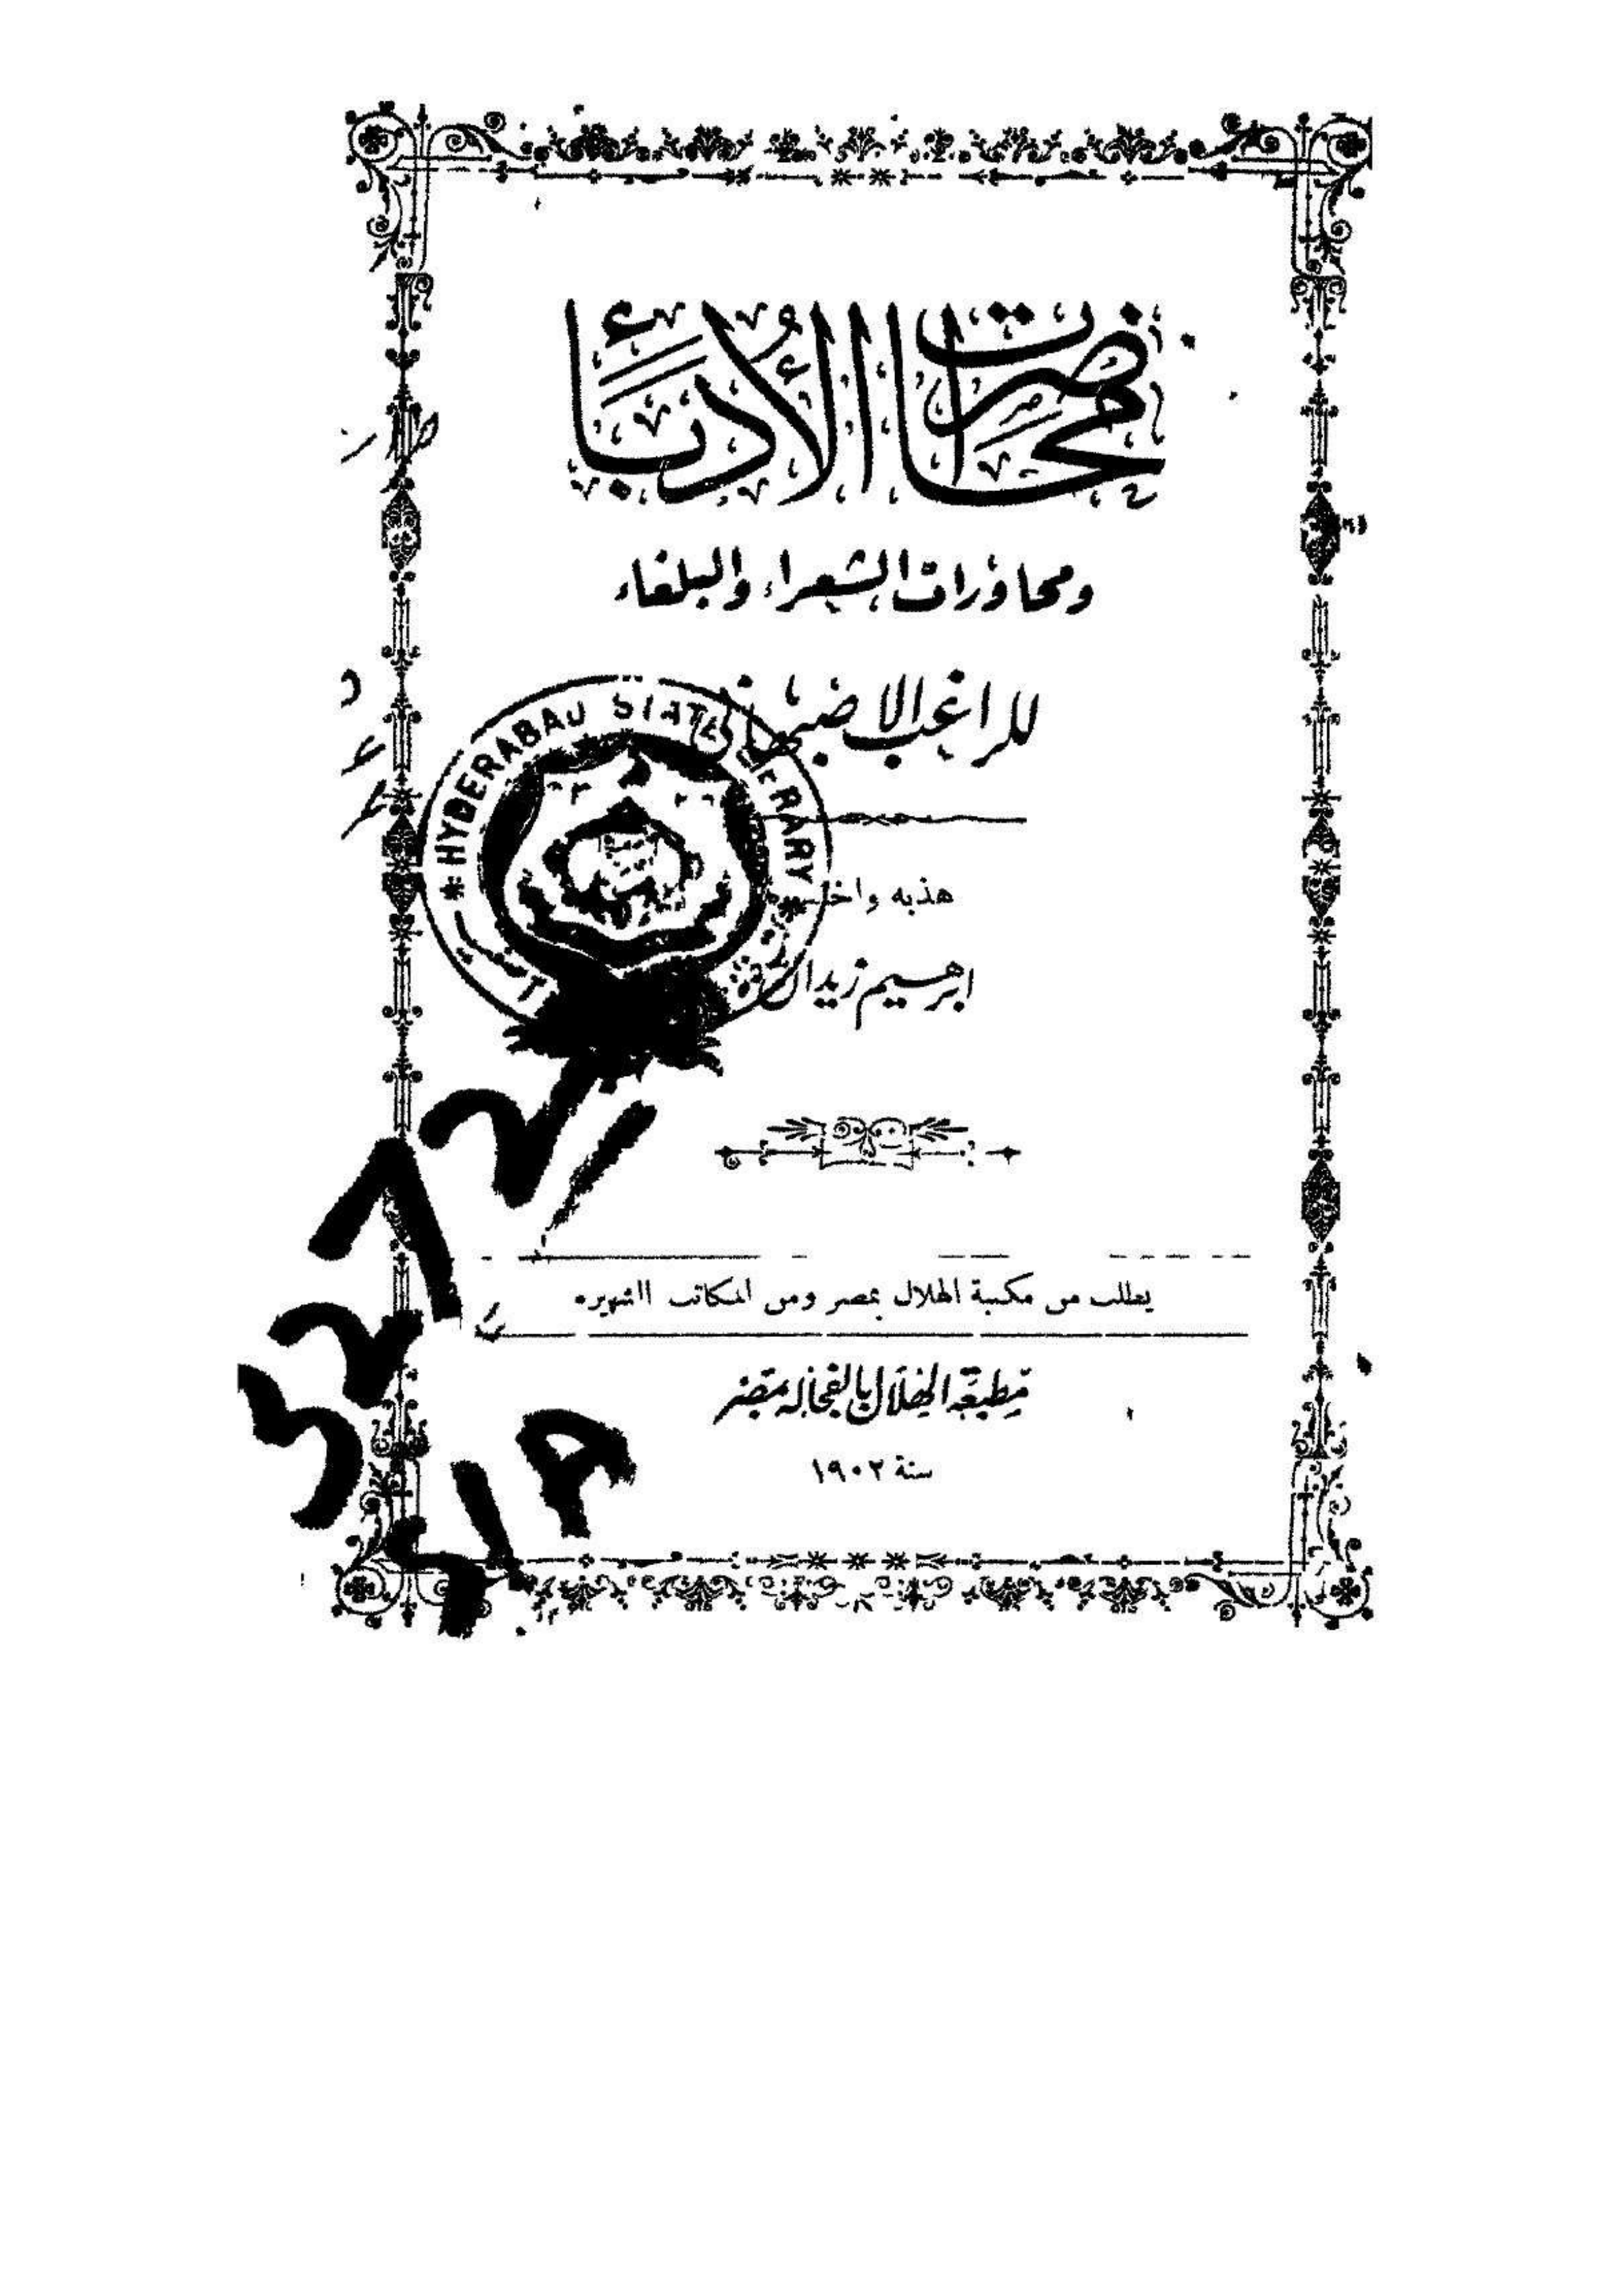 محاضرات الأدباء
ومحاورات الشعراء والبلغاء
للراغب الاصبهاني
HYDERABAD STATE LIBRARY
هذبه
ابرهيم زيدان
يطلب من مكتبة الهلال بمصر ومن المكاتب الشهيره
مطبعة الهلال بالفجاله بمصر
سنة ١٩٠٢